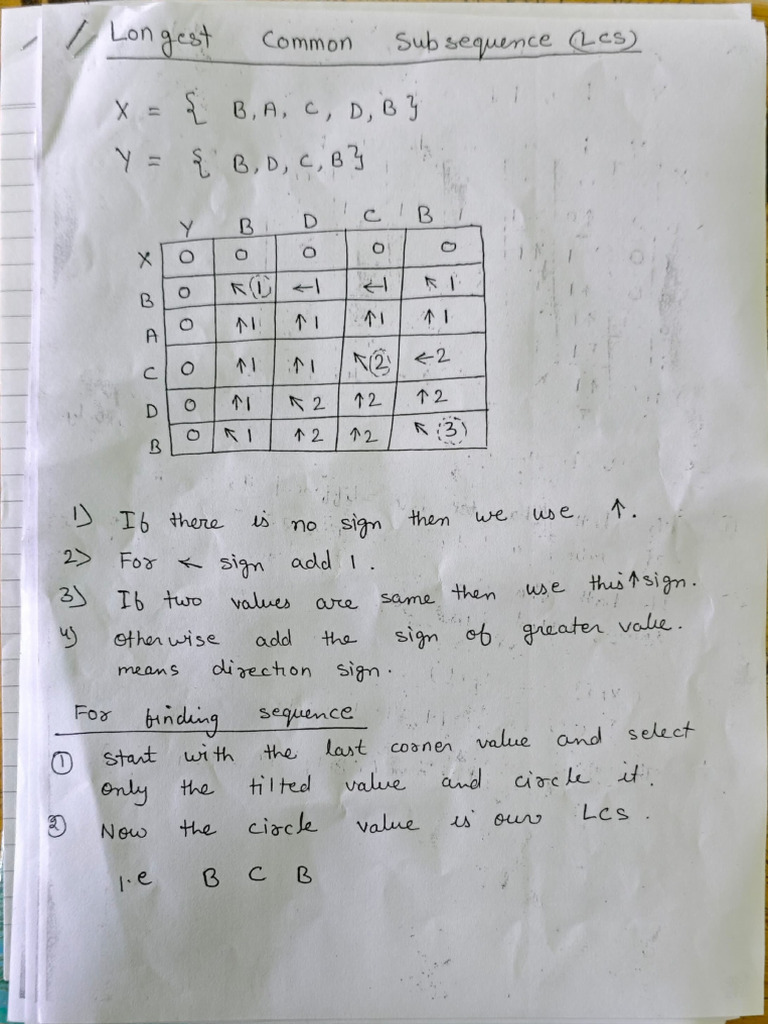 Longest Common Subsequence (LCS)
X = { B, A, C, D, B }
Y = { B, D, C, B }
Y B D C B
X 0 0 0 0 0
B 0 ↖1 ←1 ←1 ↖1
A 0 ↑1 ↑1 ↑1 ↑1
C 0 ↑1 ↑1 ↖2 ←2
D 0 ↑1 ↖2 ↑2 ↑2
B 0 ↖1 ↑2 ↑2 ↖3
1) If there is no sign then we use ↑.
2) For ↖ sign add 1.
3) If two values are same then use this ↑ sign.
4) otherwise add the sign of greater value.
means direction sign.
For finding sequence
① Start with the last corner value and select
only the tilted value and circle it.
② Now the circle value is our LCS.
i.e B C B